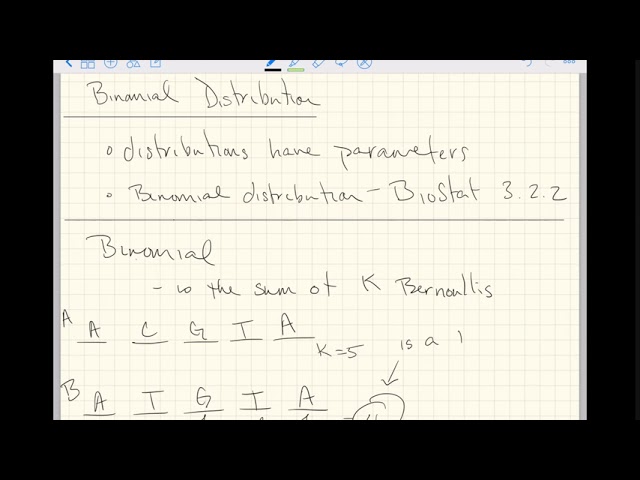 Binomial Distribution
◦ distributions have parameters
◦ Binomial distribution - BioStat 3.2.2
Binomial
- is the sum of K Bernoullis
A A C G T A K=5 is a
B A T G T A